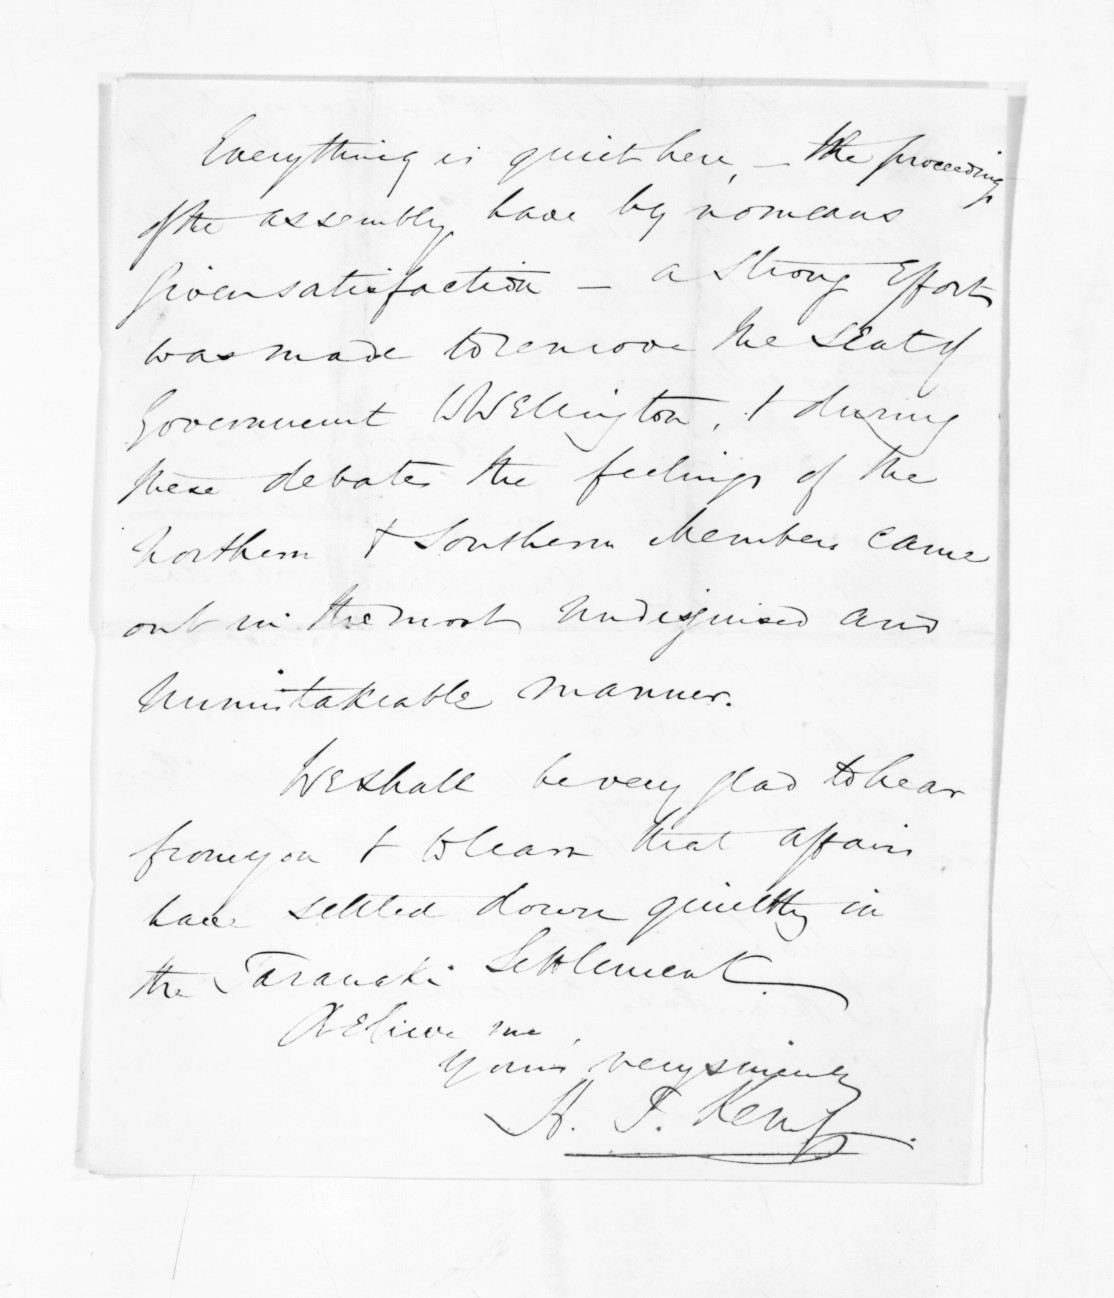 Everything is quiet here, - the proceedings
of the assembly have by no means
given satisfaction - a strong Effort
was made to remove the Seat of
Government to Wellington, & during
these debates the feelings of the
Northern & Southern Members came
out in the most undisguised and
unmistakeable manner.
We shall be very glad to hear
from you & to learn that affairs
have settled down quietly in
the Taranaki Settlement.
Believe me,
Yours very sincerely
H. T. Kemp.